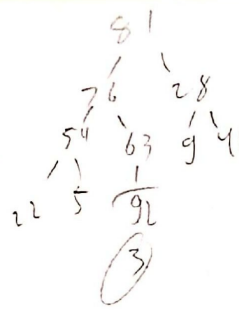 81
76 28
54 63 9 4
22 5 92
3